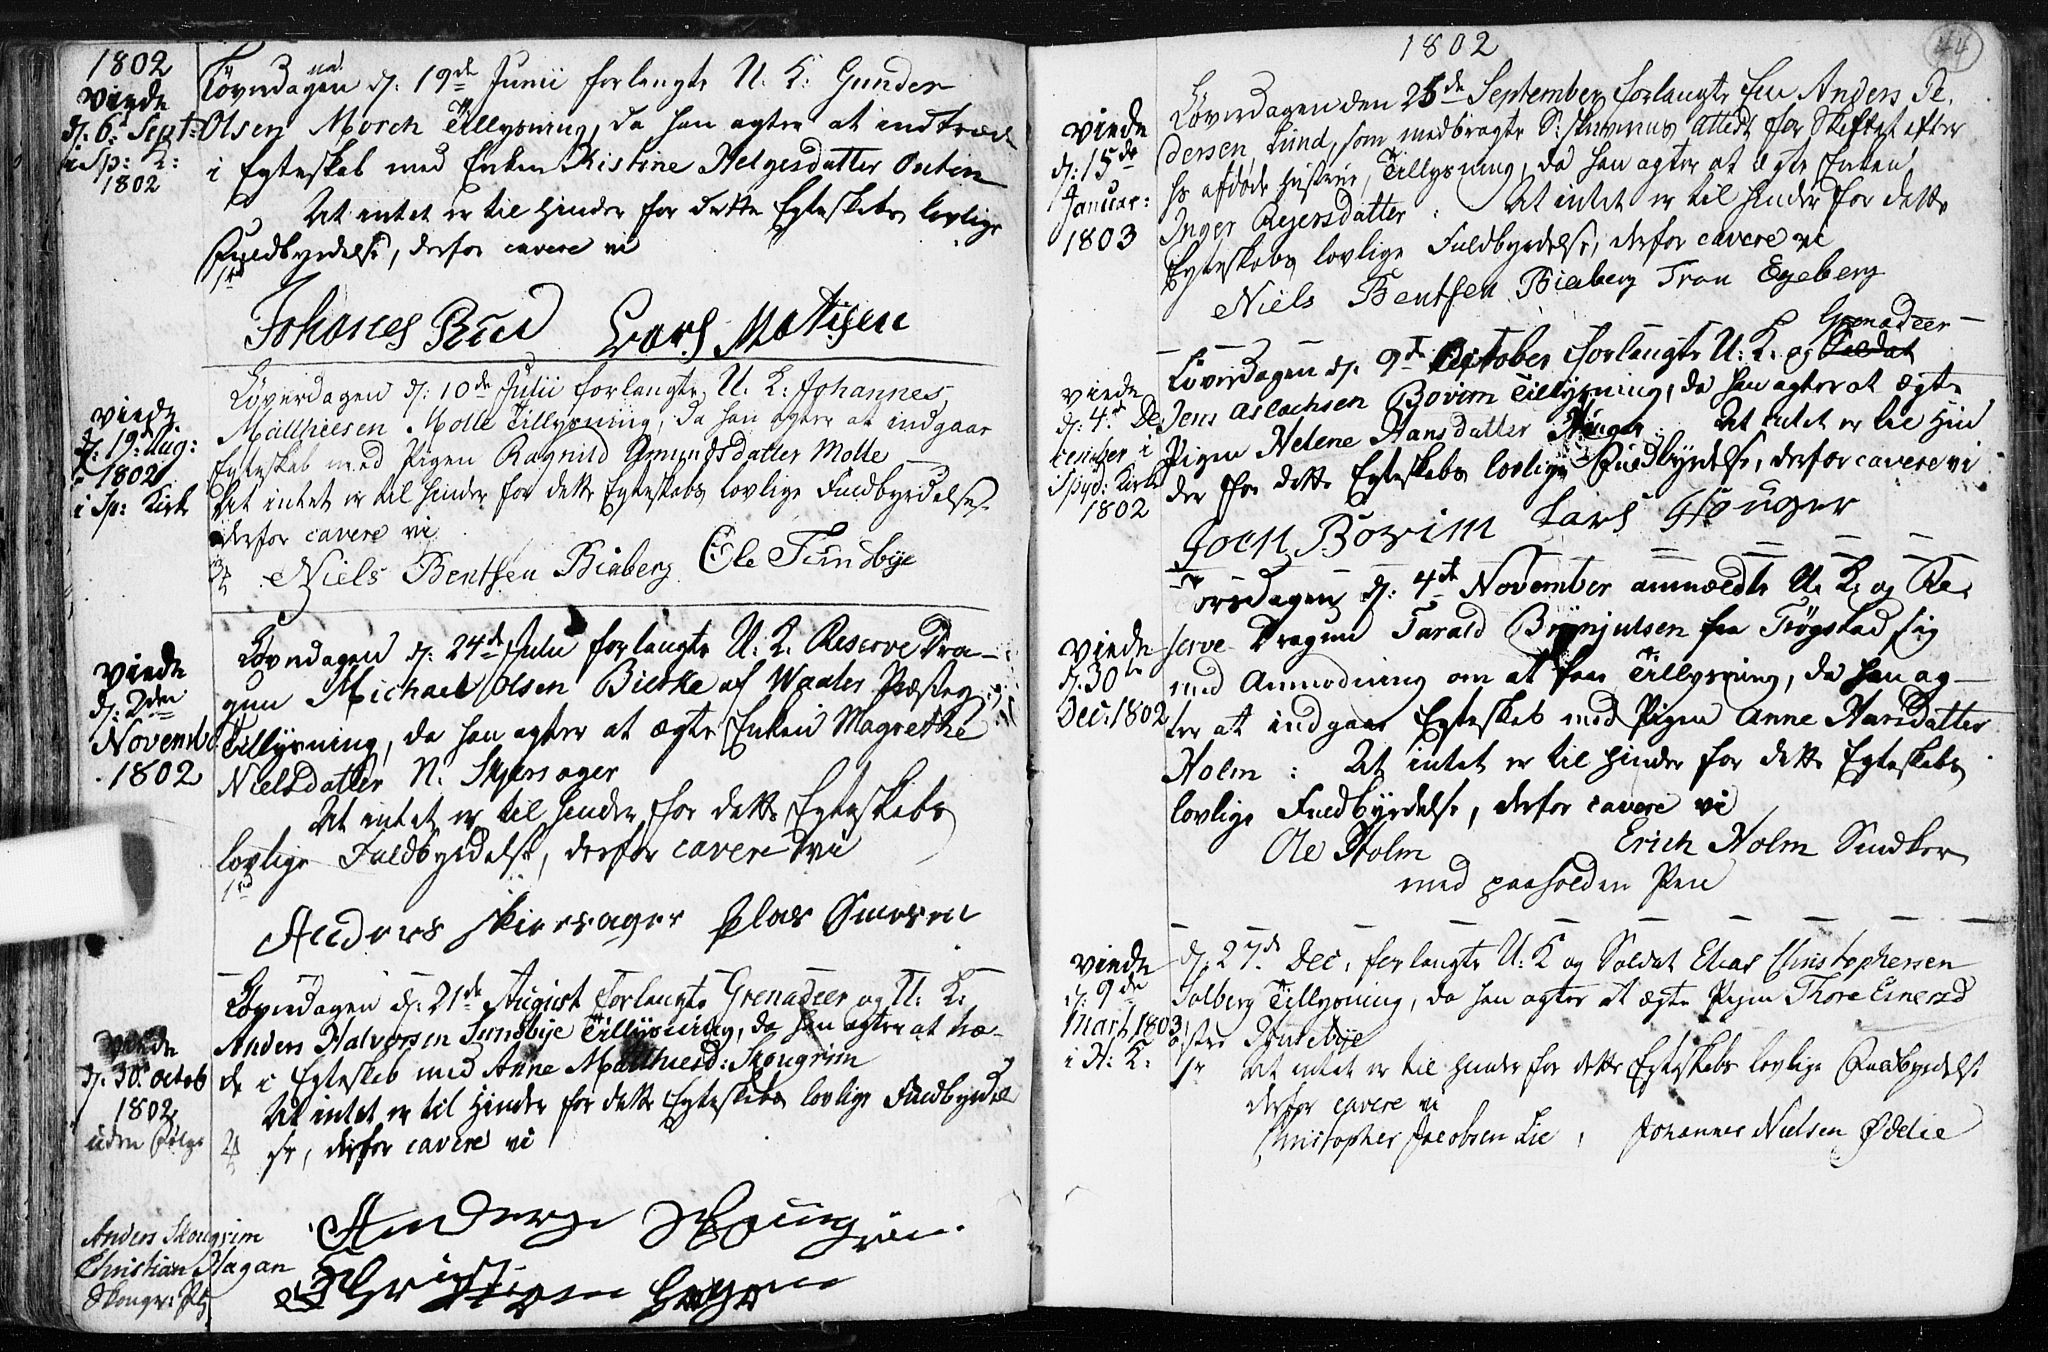 1802
Viede
d: 6: Sept:
i Sp: K:
1802
Løverdagen d: 19de Junii forlangte U. K: Gunder
Olsen Morch Tillysning, da han agter at indtræde
i Egteskab med Enken Kistine Helgesdatter
At intet er til Hinder for dette Egteskabs lovlige
Fuldbyrdelse, derfor cavere vi
Johanes Rud Lars Matisen
Viede
d: 19de Aug:
1802
i Sp: Kirke
Løverdagen d: 10de Julii forlangte U. K: Johannes
Matthiesen Molle Tillysning, da han agter at indgaae
Egteskab med Pigen Ragnild Amundsdatter Molte
At intet er til Hinder for dette Egteskabs lovlige Fuldbyrdelse
derfor cavere vi
Niels Bentsen Biaberg Ole Sundbye
Viede
d: 2den
Novemb
1802
Løverdagen d: 24de Julii forlangte U. K. Reserve Dra-
gun Michael Olsen Bierke af Waaler Præsteg:
Tillysning, da han agter at ægte Enken Magrethe
Nielsdatter N: Skiersager
At intet er til Hinder for dette Egteskabs
lovlige Fuldbyrdelse, derfor cavere vi
Anders Skiersager
Viede
d: 30te Octob
1802
uden Følge
Løverdagen d: 21de August forlangte Grenadeer og U. K:
Anders Halvorsen Sundbye Tillysning, da han agter at træ-
de i Egteskab med Anne Matthiesd: Skougrim
At intet er til Hinder for dette Egteskabs lovlige Fuldbyrdel
se, derfor cavere vi
Anders Skougrim
Christian Hagan
Anders Skougrim
Christian Hagan
1802
44
Viede
d: 15de
Januar:
1803
Løverdagen den 25de September forlangte Anders Pe-
dersen Lund, som medbragte Attest for Skiftet efter
hs afdøde Hustrue, Tillysning, da han agter at ægte Enken
Inger Reiersdatter : At intet er til Hinder for dette
Egteskabs lovlige Fuldbyrdelse, derfor cavere vi
Niels Bentsen Biaberg Tron Egeberg
Viede
d: 4de De
cember i
Spyd: Kirke
1802
Løverdagen d: 9de October forlangte U. K. og Grenadeer
Jens Aslachsen Bovim Tillysning, da han agter at ægte
Pigen Helene Hansdatter Haugen: At intet er til Hin
der for dette Egteskabs lovlige Fuldbyrdelse, derfor cavere vi
Joen Bovim Lars Houger
Viede
d: 30te
Dec: 1802
Torsdagen d: 4de November anmeldte U. K: og Re-
serve Dragun Tarald Brynjulsen fra Trøgstad sig
med Anmodning om at faae Tillysning, da han ag-
ter at indgaae Egteskab med Pigen Anne Hansdatter
Holm : At intet er til Hinder for dette Egteskabs
lovlige Fuldbyrdelse, derfor cavere vi
Ole Holm Erich Holm
med paaholden Pen
Viede
d: 9de
Marts 1803
i H: K:
d: 27de Dec: forlangte U: K og Soldat Elias Christophersen
Solberg Tillysning, da han agter at ægte Pigen Thore Einersd
At intet er til Hinder for dette Egteskabs lovlige Fuldbyrdelse
derfor cavere vi
Christopher Jacobsen Lie , Johannes Nielsen Ødelie